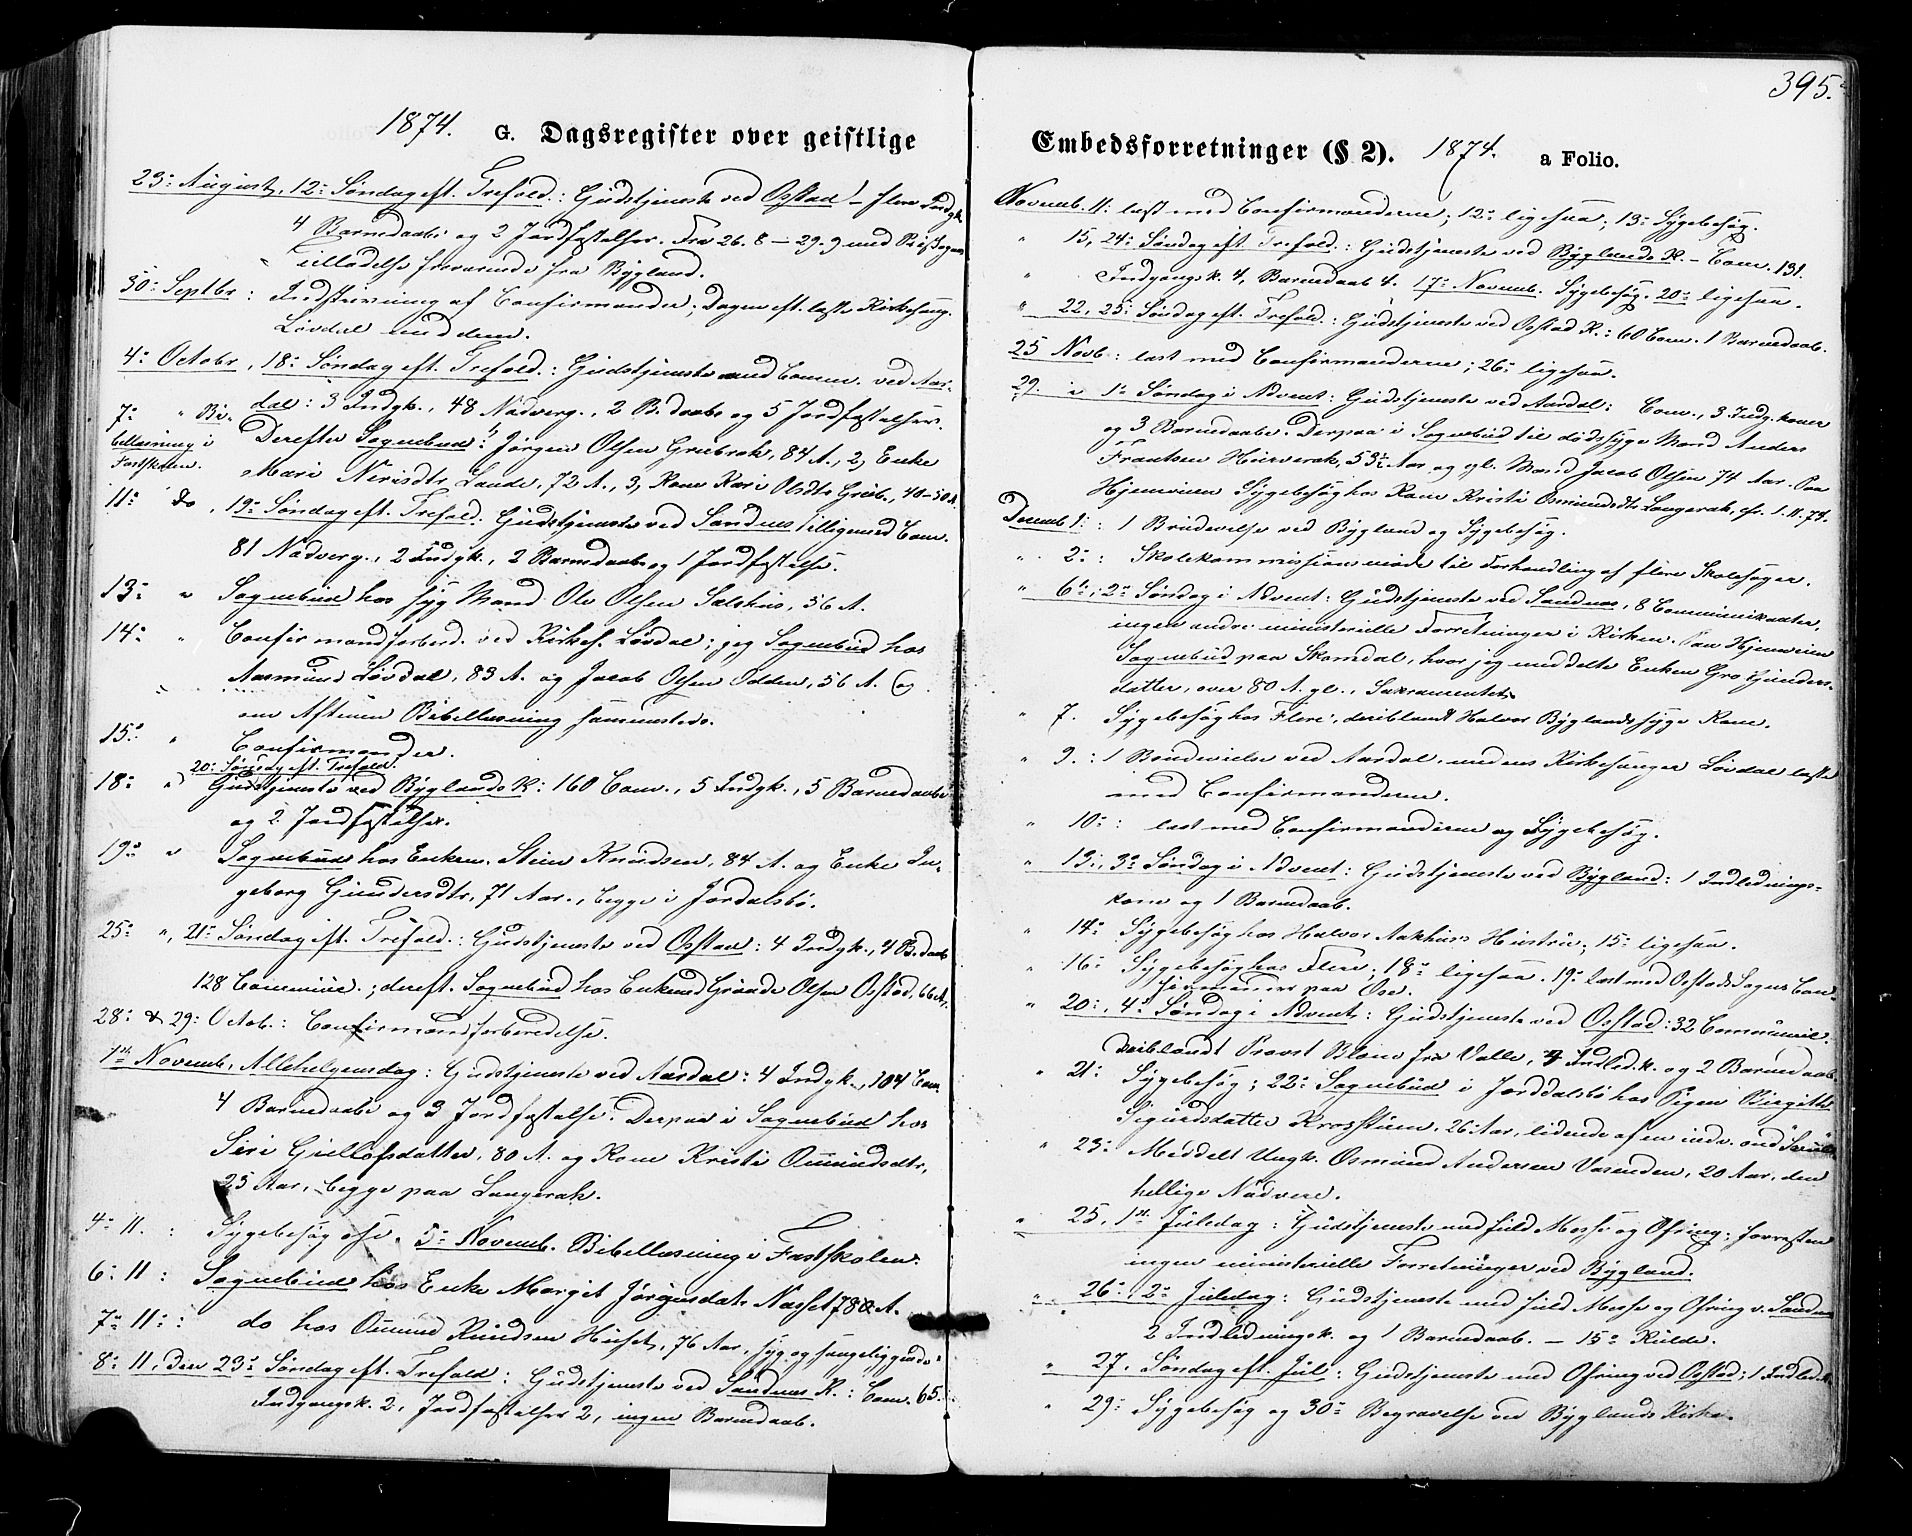 1874. G. Dagsregister over geistlige
23: August, 12: Søndag eft. Trefold.: Gudstjeneste ved Osstad – flere Indgk.
4 Barnedaabe og 2 Jordfæstelser. Fra 26.8–29.9 med
Tilladelse fraværende fra Bygland.
30: Septbr: Indskrivning af Confirmander; Dagen eft. læste Kirkesang.
Løvdal med dem.
4: Octobr, 18: Søndag eft. Trefold.: Gudstjeneste med Comm. ved Aar-
dal: 3 Indgk., 48 Nadverg., 2 B.daabe og 5 Jordfæstelser.
7: " Bi-
bellæsning i
Fastskolen.
Derefter Sognebud: 1, Jørgen Olsen Grubrok, 84 A., 2, Enke
Mari Nerisdtr Lande, 72 A., 3, Kone Kari Olsdtr Grub., 40–50 A.
11: do, 19: Søndag eft. Trefold. Gudstjeneste ved Sandnes tilligemed Com.
81 Nadverg., 2 Indgk., 2 Barnedaabe og 1 Jordfæstelse.
13: " Sognebud hos syg Mand Ole Olsen Sælshus, 56 A.
14: " Confirmandforbered. ved Kirkes. Løvdal; jeg Sognebud hos
Aasmund Løvdal, 83 A. og Jacob Olsen Odden, 56 A. og
om Aftenen Bibellæsning sammesteds.
15: " Confirmander.
20: Søndag eft. Trefold.
18: " Gudstjeneste ved Byglands K: 160 Com., 5 Indgk., 5 Barnedaabe
og 2 Jordfæstelser.
19: " Sognebud hos Enkem. Stien Knudsen, 84 A. og Enke In-
geborg Gundersdtr, 71 Aar., begge i Jordalsbø.
25: ", 21: Søndag eft. Trefold.: Gudstjeneste ved Osstad: 4 Indgk., 4 B.daab
128 Commun.; dereft. Sognebud hos Enkemd Gunde Olsen Osstad, 66 A.
28: & 29: Octob.: Confirmandforberedelse.
1ste Novemb., Allehelgensdag: Gudstjeneste ved Aardal: 4 Indgk., 104 Com.
4 Barnedaabe og 3 Jordfæstelse. Derpaa i Sognebud hos
Siri Gullofsdatter, 80 A. og Kone Kristi Osmundsdtr,
23 Aar, begge paa Langerak.
4: 11.: Sygebesøg 5: Novemb. Bibellæsning i Fastskolen.
6: 11: Sognebud hos Enke Margit Jørgensdatr Næsset 78 A.
7: 11: do hos Omund Knudsen Huset, 76 Aar, syg og sengeliggende.
8: 11, den 23: Søndag eft. Trefold: Gudstjeneste ved Sandnes K.: Com. 65.
Indgangsk. 2, Jordfæstelser 2, ingen Barnedaab.
395.
Embedsforretninger (§ 2). 1874. a Folio.
Novemb. 11: læst med Confirmanderne; 12: ligesaa; 13: Sygebesøg.
" 15, 24: Søndag eft. Trefold.: Gudstjeneste ved Byglands K. – Com. 131.
" Indgangsk. 4, Barnedaab 4. 17: Novemb. Sygebesøg. 20: ligesaa.
" 22, 25: Søndag eft. Trefold.: Gudstjeneste ved Osstad K.: 60 Com. 1 Barnedaab.
25 Novb: læst med Confirmanderne; 26: ligesaa.
29. 1: Søndag i Advent: Gudstjeneste ved Aardal: Com., 3 Indg.koner
og 3 Barnedaabe. Derpaa i Sognebud til dødssyge Mand Anders
Frantsen Hurverak, 53 Aar og gl. Mand Jacob Olsen 74 Aar. Paa
Hjemveien Sygebesøg hos Kone Kristi Osmundsdtr Langerak, cfr. 1.11.74.
Decemb 1: 1 Brudevielse ved Bygland og Sygebesøg.
" 2: Skolekommissionsmøde til Forhandling af flere Skolesager.
" 6:, 2: Søndag i Advent: Gudstjeneste ved Sandnes, 8 Communikanter,
ingen andre ministerielle Forretninger i Kirken. Paa Hjemveien
Sognebud paa Skomdal, hvor jeg meddelte Enken Gro Gunders-
datter, over 80 A. gl., Sakramentet.
" 7. Sygebesøg hos Flere, deriblandt Halvor Byglands syge Kone.
" 9.: 1 Bondevielse ved Aardal, medens Kirkesanger Løvdal læste
med Confirmanderne.
" 10: læst med Confirmanderne og Sygebesøg.
" 13:, 3: Søndag i Advent: Gudstjeneste ved Bygland: 1 Indlednings-
kone og 1 Barnedaab.
" 14: Sygebesøg hos Halvor Aakhus's Hustru; 15: ligesaa.
" 16: Sygebesøg hos Flere; 18: ligesaa. 19: læst med Osstads Sogns Con-
firmander paa Ose.
" 20:, 4: Søndag i Advent: Gudstjeneste ved Osstad: 32 Communik.
deriblandt Provst Blom fra Valle, 4 Indled.k. og 2 Barnedaab.
" 21: Sygebesøg; 22: Sognebud i Jorddalsbø hos Pigen Birgitte
Sigurdsdatter Krosstuen, 26 Aar, lidende af en
" 23: Meddelt Ungk. Osmund Andersen Vasenden, 20 Aar, den
hellige Nadvere.
" 25, 1ste Juledag: Gudstjeneste med fuld Messe og Ofring; forresten
ingen ministerielle Forretninger ved Bygland.
" 26:, 2: Juledag: Gudstjeneste med fuld Messe og Ofring v. Sandnes
2 Indledningsk. og 1 Barnedaab. – 15° Kulde.
" 27. Søndag eft. Jul: Gudstjeneste med Ofring ved Osstad; 1 Indled.k.
" 29: Sygebesøg og 30: Begravelse ved Byglands Kirke.